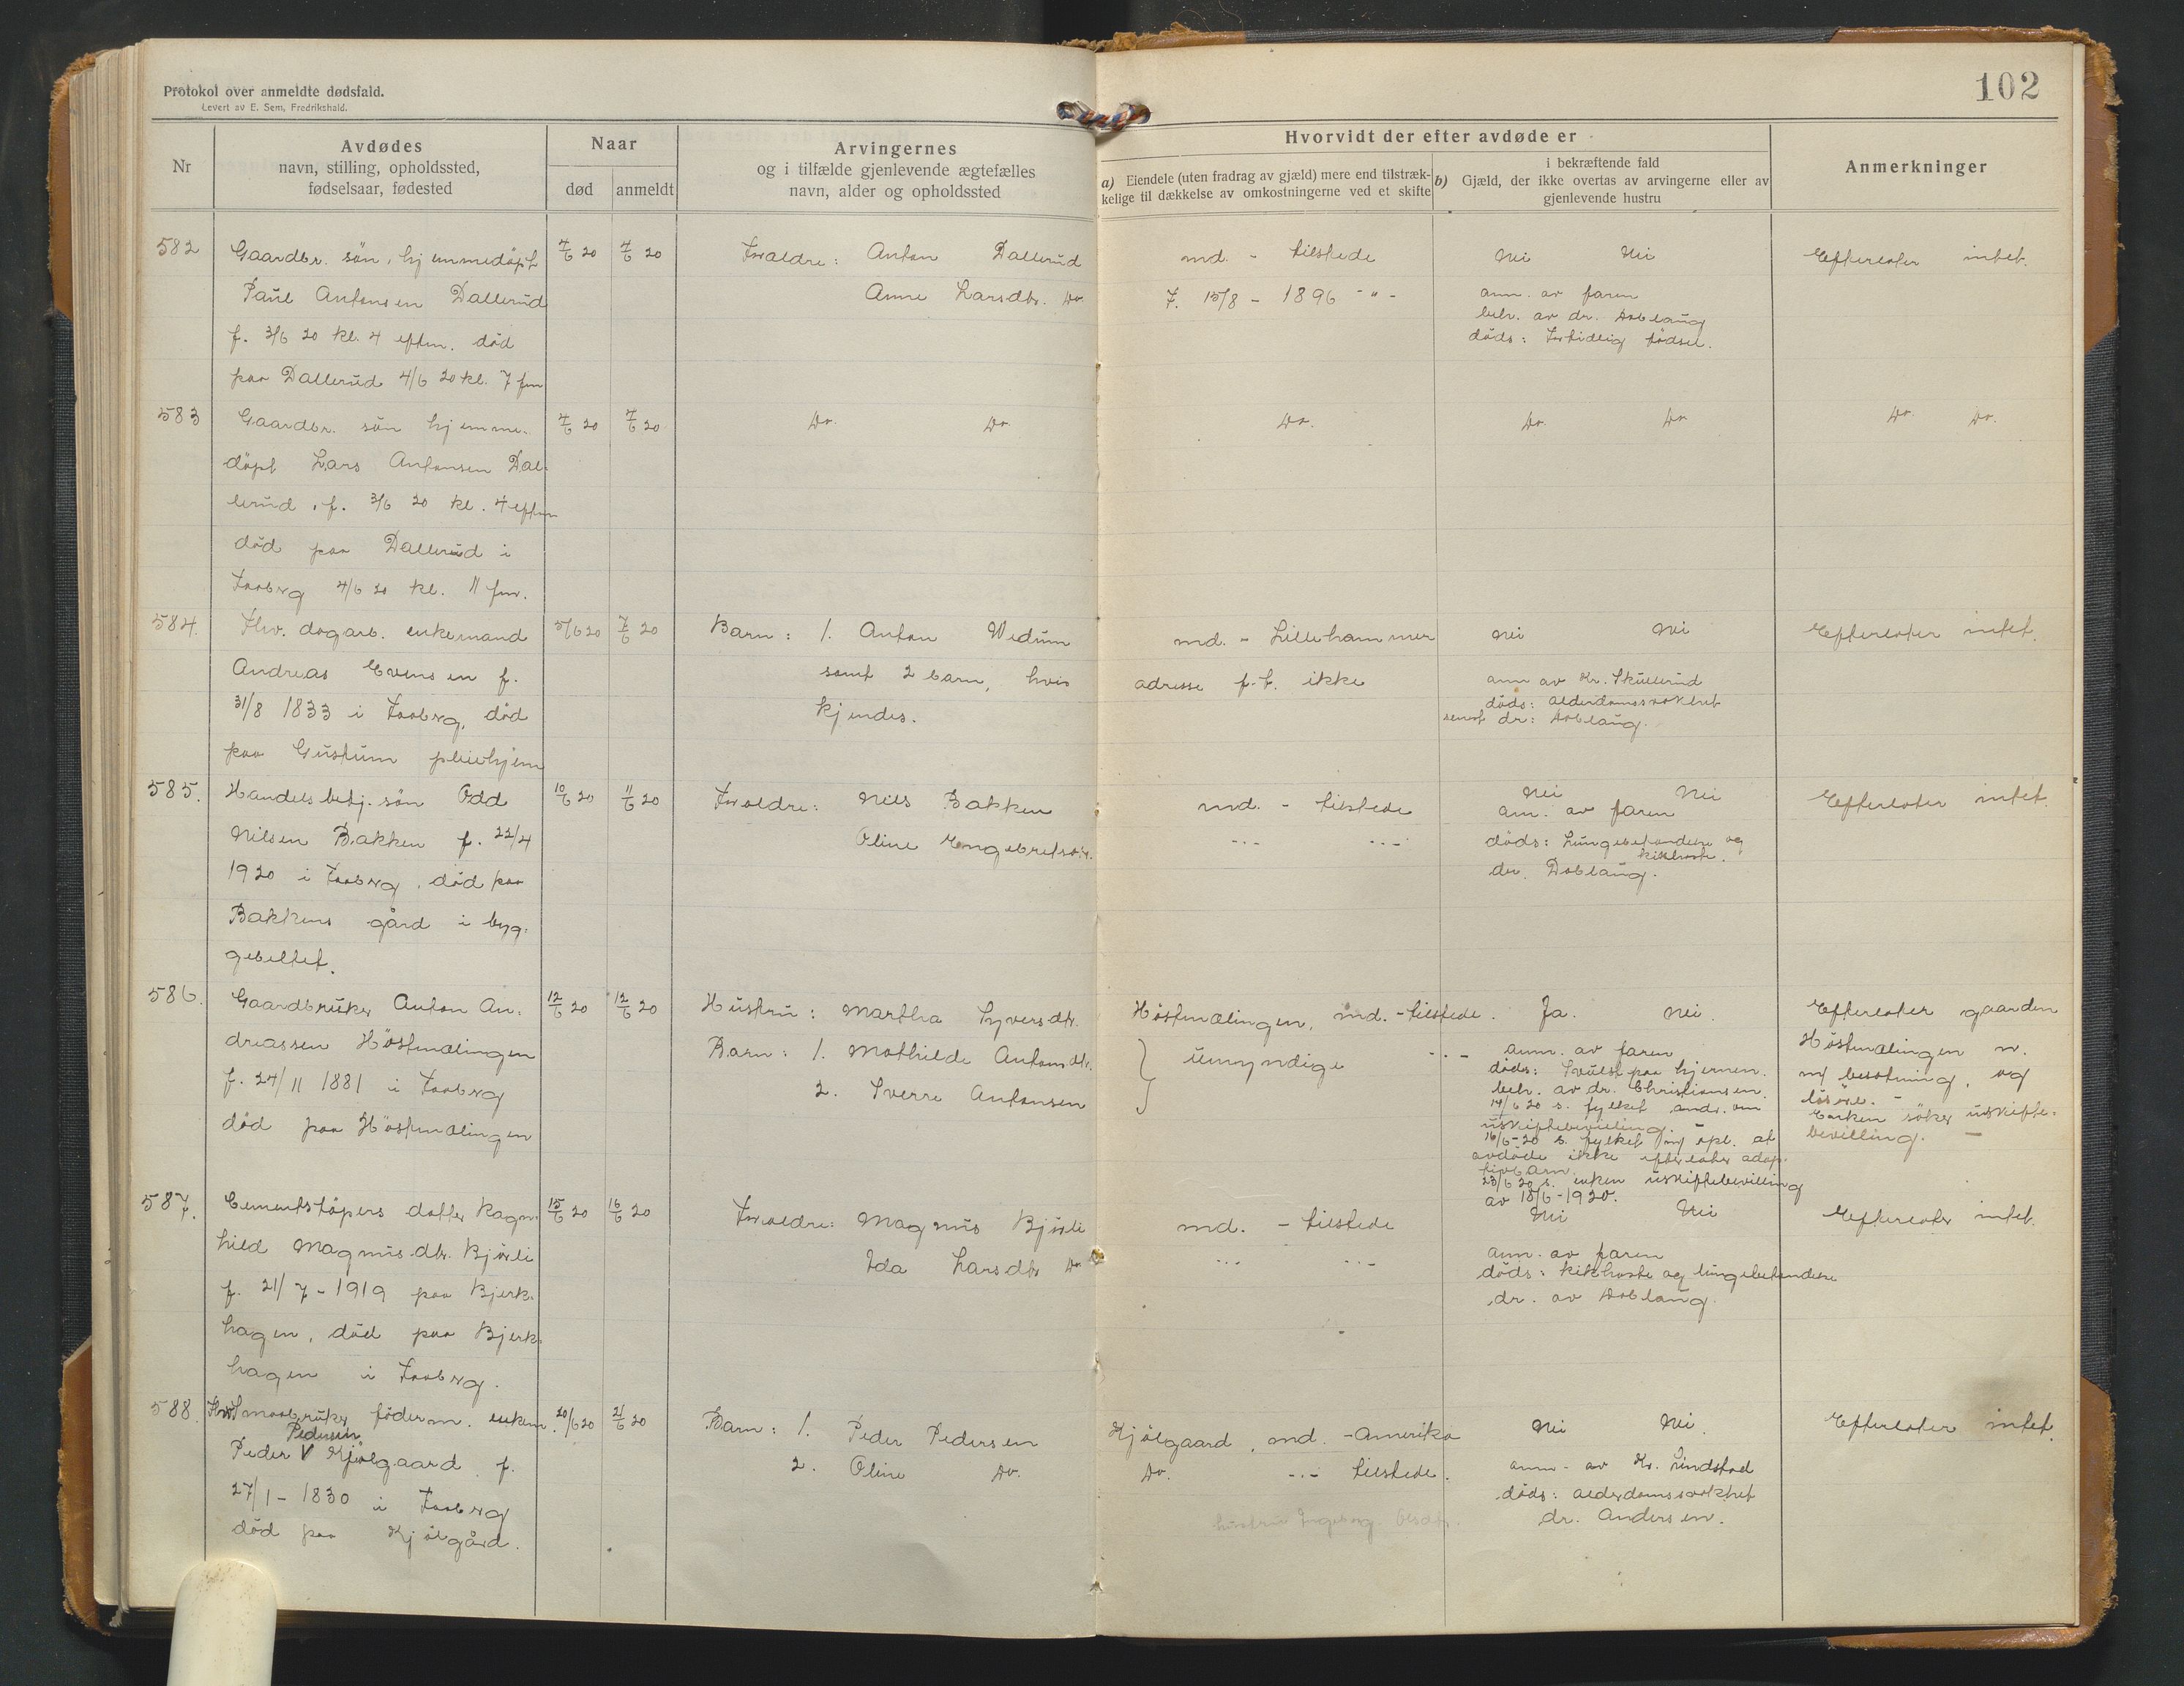 Protokol over anmeldte dødsfald.
Levert av E. Sem, Fredrikshald.
102
Nr
Avdødes
navn, stilling, opholdssted,
fødselsaar, fødested
Naar
død
anmeldt
Arvingernes
og i tilfælde gjenlevende ægtefælles
navn, alder og opholdssted
Hvorvidt der efter avdøde er
a) Eiendele (uten fradrag av gjæld) mere end tilstræk-
kelige til dækkelse av omkostningerne ved et skifte
i bekræftende fald
b) Gjæld, der ikke overtas av arvingerne eller av
gjenlevende hustru
Anmerkninger
582 Gaardbr. sön, hjemmedöpt 4/6 20 7/6 20 Foraeldre: Anton Dallerud md. - tilstede Nei Nei Efterlater intet.
Paul Antonsen Dallerud Anne Larsdtr. Do f. 15/8 - 1896 - " - anm. av faren
beh. av dr. Doblaug
f. 3/6 20 kl. 4 eftm. död döds: Fortidlig fødsel.
paa Dallerud 4/6 20 kl. 7 fm
583 Gaardbr. sön hjemme- 4/6 20 7/6 20 Do. Do. Do. Do. Do Do. Do.
döpt Lars Antonsen Dal-
lerud, f. 3/6 20 kl. 4 eftm
död paa Dallerud i
Faaberg 4/6 20 kl. 11 fm.
584. Fhv. dagarb. enkemand 5/6 20 7/6 20 Barn: 1. Anton Wedum md. - Lillehammer Nei Nei Efterlater intet.
Andreas Evensen f. samt 2 barn, hvis adresse f.t. ikke anm av Kr. Skullerud
31/8 1833 i Faaberg, död kjendes. döds: alderdomssvakhet
senest dr: Doblaug.
paa Gustum pleiehjem
585. Handelsbetj. sön Odd 10/6 20 11/6 20 Foraeldre: Nils Bakken md. - tilstede Nei Nei Efterlater intet.
anm. av faren
Nilsen Bakken f. 22/4 Oline Engebretsdtr. -"- -"- döds: Lungebetændelse og
kikhoste.
1920 i Faaberg, död paa dr. Doblaug.
Bakkens gård i byg-
gebeltet.
586. Gaardbruker Anton An- 12/6 20 12/6 20 Hustru: Martha Syversdtr. Höstmælingen, md. - tilstede. Ja. Nei. Efterlater gaarden
dreassen Höstmælingen Barn: 1. Mathilde Antonsdtr. } umyndige -"- anm. av faren Höstmælingen m.
döds: Svulst paa hjernen.
f. 24/11 1881 i Faaberg 2. Sverre Antonsen beh. av dr. Christiansen. m/ besætning, og
14/6 20 s. fylket andr. om løsöre. -
död paa Höstmælingen uskiftebevilling. - Enken söker uskifte-
16/6-20 s. fylket m/ opl. at bevilling. -
avdöde ikke efterlater adop-
tivbarn.
23/6 20 s. enken uskiftebevilling
av 18/6-1920.
587. Cementstöpers datter Ragn- 15/6 20 16/6 20 Foraeldre: Magnus Bjørli md. - tilstede Nei Nei Efterlater intet.
hild Magnusdtr. Bjørli Ida Larsdtr Do -"- -"- anm. av faren
döds: kikhoste og lungebetændelse
f. 21/7 - 1919 paa Bjerk- dr. av Doblaug.
hagen, död paa Bjerk-
hagen i Faaberg.
588. Fhv. Smaabruker föderm. enkem. 20/6 20 21/6 20 Barn: 1. Peder Pedersen Kjölgaard, md. - Amerika Nei Nei. Efterlater intet.
Pedersen
Peder V Kjölgaard f. 2. Oline Do. Do. -"- tilstede. anm. av Kr. Lindstad
27/1 - 1830 i Faaberg döds: alderdomssvakhet
död paa Kjölgård. hustru Ingeborg dr. Andersen.